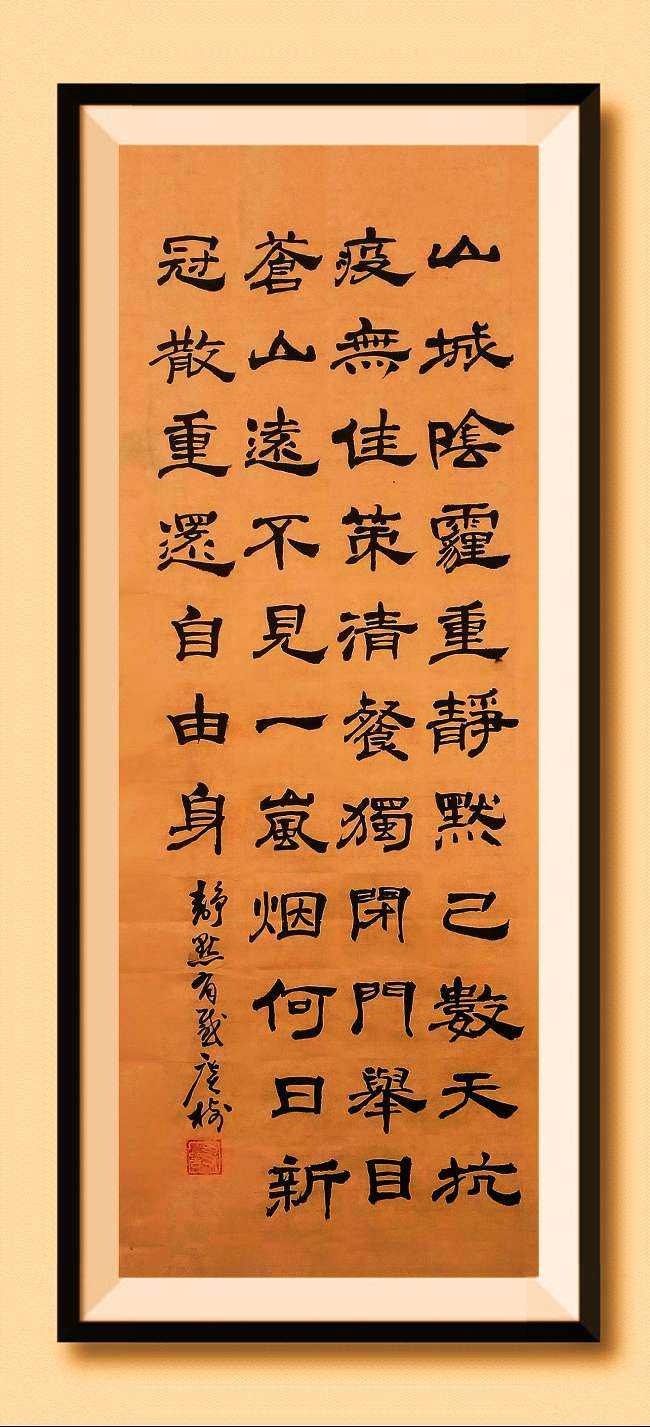 山城陰霾重靜默己數天抗
疫無佳策清餐獨閉門舉目
蒼山遠不見一嵐烟何日新
冠散重還自由身
靜默有感